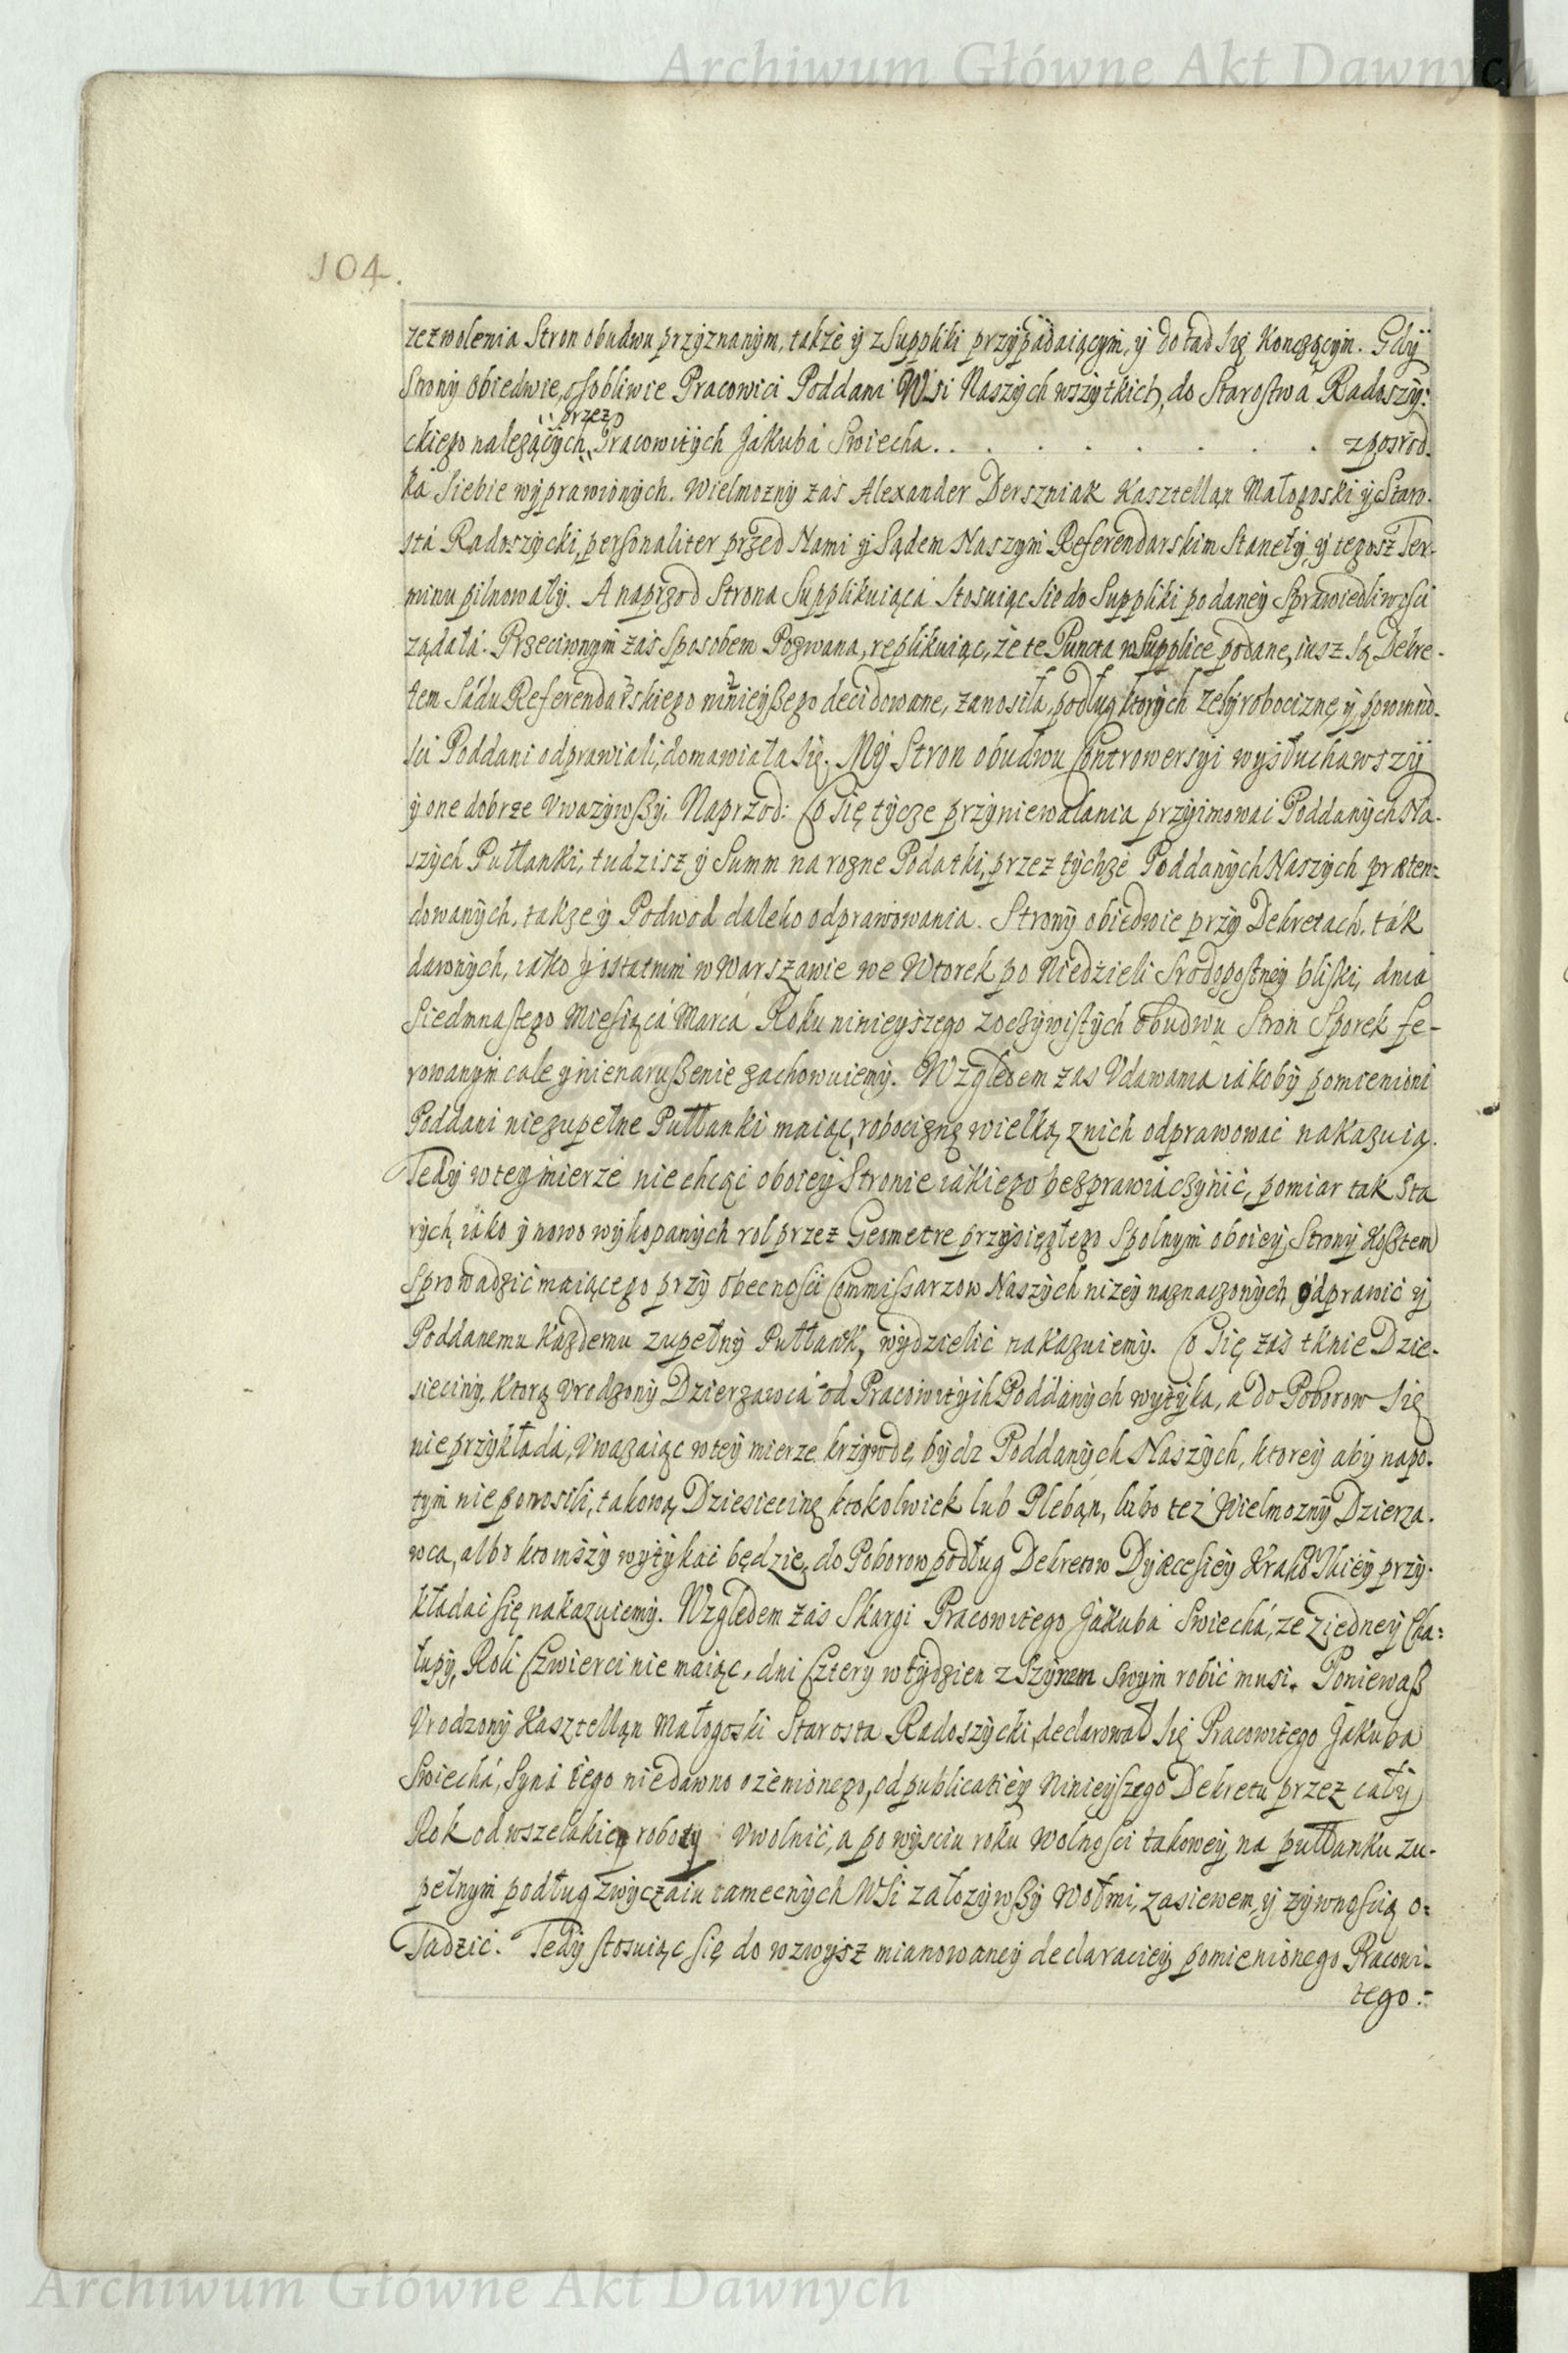 Archiwum Główne Akt Dawnych
104.
zezwolenia Stron obudwu przyznanym, także y z Suppliki przypadaiącym, y dotąd się Konczącym. Gdy
Strony obiedwie, osobliwie Pracowici Poddani Wsi Naszych wszytkich, do Starostwa Radoszy-
ckiego należących, przez Pracowitych Jakuba Swiecha . . . . . . . . . zposrod-
ka Siebie wyprawionych. Wielmozny zaś Alexander Derszniak Kasztellan Małogoski y Staro-
sta Radoszycki, personaliter przed Nami y Sądem Naszym Referendarskim Stanęły, y tegosz Ter-
minu pilnowały. A naprzod Strona Supplikuiąca Stosuiąc Sie do Suppliki podaney Sprawiedliwosci
ządała. Przeciwnym zaś Sposobem Pozwana, replikuiąc, że te Puncta w Supplice podane, iusz są Dekre-
tem Sądu Referendarskiego ninieyßego decidowane, zanosiła, podług ktorych zeby robociznę y powinno-
sci Poddani odprawiali, domawiała się. My Stron obudwu Controwersyi wysłuchawszy
y one dobrze Vwazywßy, Naprzod: Co się tycze przyniewalania przyimowai Poddanych Na-
szych Pułłanki, tudzisz y Summ na rozne Podatki, przez tychże Poddanych Naszych præten-
dowanych, takze y Podwod daleko odprawowania. Strony obiedwie przy Dekretach, ták
dawnych, iáko y ostatnim w Warszawie we Wtorek po Niedzieli Srodopostney bliski, dnia
Siedmnastego Miesiąca Marca Roku ninieyszego zoczywistych obudwu Stron Sporek fe-
rowanym cale y nienarußenie zachowuiemy. Względem zas Vdawania iákoby pomienieni
Poddani niezupełne Pułłanki maiąc, robociznę wielką znich odprawować nakazuią.
Tedy w tey mierze niechcąc oboiey Stronie iákiego bezprawia czynić, pomiar tak Sta
rych, iáko y nowo wykopanych rol przez Geometre przysięgłego Spolnym oboiey Strony Kosztem
Sprowadzić maiącego przy obecności Commissarzow Naszych nizey naznaczonych odprawić y
Poddanemu Kazdemu zupełny Pułłank, wydzielić nakazuiemy. Co Się zaś tknie Dzie-
sieciny, Ktorą Vrodzony Dzierzawca od Pracowitych Poddanych wytyka, a do Poborow się
nie przykłada, Vwazaiąc w tey mierze krzywdę bydz Poddanych Naszych, ktorey aby napo-
tym nie ponosili, takową Dziesiecinę ktokolwiek lub Pleban, lubo też Wielmozny Dzierza-
wca, albo kto inszy wytykać będzie, do Poborow podług Dekretow Dyæcesiey Krakowskiey przy-
kładać się nakazuiemy. Względem zás Skargi Pracowitego Jakuba Swiecha, ze z iedney Cha-
łupy, Roli Czwierci nie maiąc, dni Cztery w tydzien z Synem Swym robić musi. Poniewaß
Vrodzony Kasztellan Małogoski Starosta Radoszycki, declarował się Pracowitego Jakuba
Swiecha, Syna iego niedawno ożenionego, od publicatiey Ninieyszego Dekretu przez cały
Rok od wszelakiey roboty Vwolnić, a po wysciu roku Wolnosci takowey, na pułłanku zu-
pełnym podług zwyczaiu tamecnych Wsi założywßy Wołmi, zasiewem, y żywnością o-
sadzić. Tedy stosuiąc się do wzwysz mianowaney declaraciey pomienionego Pracowi-
tego:
Archiwum Główne Akt Dawnych